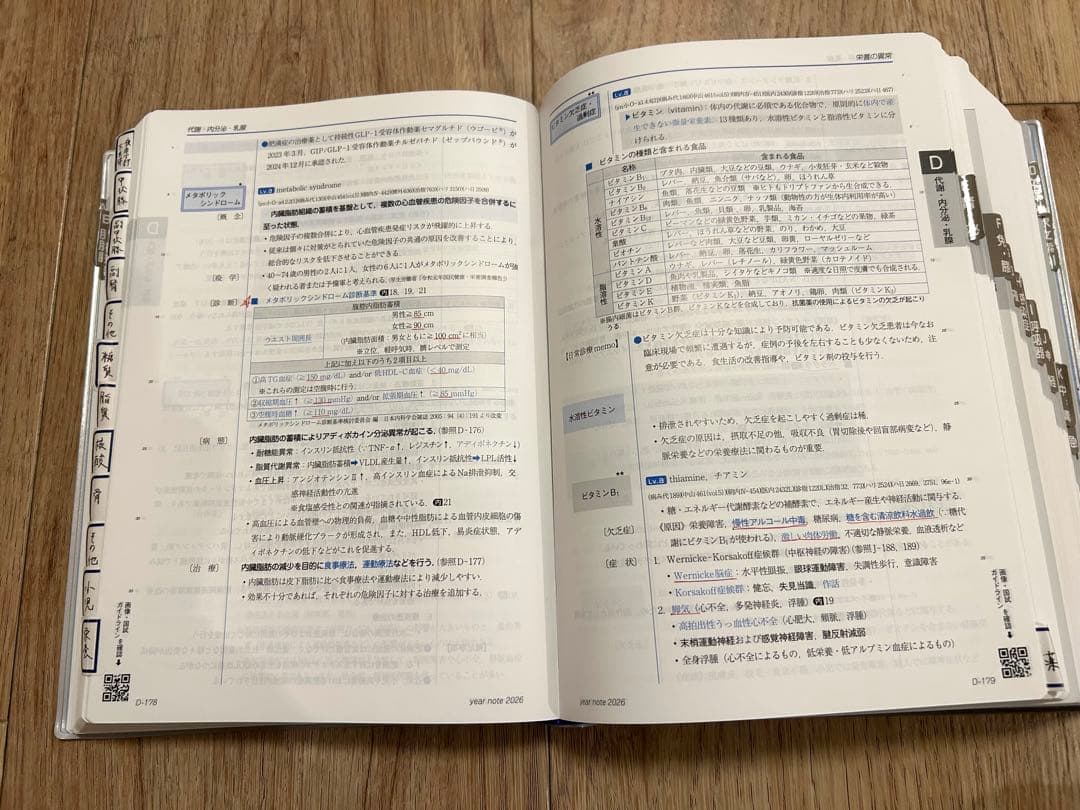 代謝・内分泌・乳腺
●肥満症の治療薬として持続性GLP-1受容体作動薬セマグルチド(ウゴービ®)が
2023年3月、GIP/GLP-1受容体作動薬チルゼパチド(ゼップバウンド®)が
2024年12月に承認された.
メタボリック
シンドローム
Lv.a metabolic syndrome
[概念]
内臓脂肪組織の蓄積を基盤として、複数の心血管疾患の危険因子を合併するに
至った状態.
・危険因子の複数合併により、心血管疾患発症リスクが飛躍的に上昇する.
・従来は個々に対策がとられていた危険因子の共通の原因を改善することにより、
総合的なリスクを低下させることができる.
[疫学]
・40〜74歳の男性の2人に1人、女性の6人に1人がメタボリックシンドロームが強
く疑われる者または予備軍と考えられる.
[診断]
■メタボリックシンドローム診断基準 内18, 19, 21
腹腔内脂肪蓄積
ウエスト周囲長
男性≧85 cm
女性≧90 cm
(内臓脂肪面積:男女ともに≧100 cm²に相当)
※立位、軽呼気時、臍レベルで測定
上記に加え以下のうち2項目以上
①高TG血症(≧150 mg/dL) and/or 低HDL-C血症(<40 mg/dL)
※これらの測定は空腹時に行う.
②収縮期血圧↑(≧130 mmHg) and/or 拡張期血圧↑(≧85 mmHg)
③空腹時血糖↑(≧110 mg/dL)
メタボリックシンドローム診断基準検討委員会 編 日本内科学会雑誌 2005;94(4):191より改変
[病態]
内臓脂肪の蓄積によりアディポカイン分泌異常が起こる.(参照D-176)
・耐糖能異常:インスリン抵抗性(∵TNF-α↑、レジスチン↑、アディポネクチン↓)
・脂質代謝異常:内臓脂肪蓄積➡VLDL産生量↑、インスリン抵抗性➡LPL活性↓
・血圧上昇:アンジオテンシンⅡ↑、高インスリン血症によるNa排泄抑制、交
感神経活動性の亢進
※食塩感受性との関連が指摘されている. 内21
・高血圧による血管壁への物理的負荷、血糖や中性脂肪による血管内皮細胞の傷
害により動脈硬化プラークが形成され、また、HDL低下、易炎症状態、アデ
ィポネクチンの低下などがこれを促進する.
[治療]
内臓脂肪の減少を目的に食事療法、運動療法などを行う.(参照D-177)
・内臓脂肪は皮下脂肪に比べ食事療法や運動療法により減少しやすい.
・効果不十分であれば、それぞれの危険因子に対する治療を追加する.
画像・国試
ガイドラインを確認
D-178
year note 2026
その他
糖質
脂質
核酸
骨
その他
小児
栄養の異常
ビタミン欠乏症・
過剰症
Lv.a
▶ビタミン(vitamin):体内の代謝に必須である化合物で、原則的に体内で産
生できない微量栄養素. 13種類あり、水溶性ビタミンと脂溶性ビタミンに分
けられる.
■ビタミンの種類と含まれる食品
名称 含まれる食品
水溶性
ビタミンB₁ ブタ肉、内臓類、大豆などの豆類、ウナギ、小麦胚芽・玄米など穀物
ビタミンB₂ レバー、納豆、魚介類(サバなど)、卵、ほうれん草
ナイアシン 魚類、落花生などの豆類 ※ヒトもトリプトファンから生合成できる.
ビタミンB₆ 肉類、魚類、ニンニク、ナッツ類(動物性の方が生体内利用率が高い)
ビタミンB₁₂ レバー、魚類、貝類、卵、乳製品、海苔
ビタミンC ピーマンなどの緑黄色野菜、芋類、ミカン・イチゴなどの果物、緑茶
葉酸 レバー、ほうれん草などの野菜、のり、わかめ、大豆
ビオチン レバーなど肉類、大豆など豆類、卵黄、ローヤルゼリーなど
パントテン酸 レバー、納豆、卵、落花生、カリフラワー、マッシュルーム
脂溶性
ビタミンA ウナギ、レバー(レチノール)、緑黄色野菜(カロテノイド)
ビタミンD 魚肉や乳製品、シイタケなどキノコ類 ※適度な日照で皮膚でも合成される.
ビタミンE 植物油、種実類、魚脂
ビタミンK 野菜(ビタミンK₁)、納豆、アオノリ、鶏卵、肉類(ビタミンK₂)
※腸内細菌はビタミンB群、ビタミンKなどを合成しており、抗菌薬の使用によるビタミンの欠乏が起こり
うる
【日常診療memo】
●ビタミン欠乏症は十分な知識により予防可能である. ビタミン欠乏患者は今なお
臨床現場で頻繁に遭遇するが、症例の予後を左右することも少なくないため、注
意が必要である. 食生活の改善指導や、ビタミン剤の投与を行う.
水溶性ビタミン
・排泄されやすいため、欠乏症を起こしやすく過剰症は稀.
・欠乏症の原因は、摂取不足の他、吸収不良(胃切除後や回盲部病変など)、静
脈栄養などの栄養療法に関わるものが重要.
ビタミンB₁
Lv.a thiamine, チアミン
・糖・エネルギー代謝酵素などの補酵素で、エネルギー産生や神経活動に関与する.
[欠乏症]
(原因)栄養障害、慢性アルコール中毒、糖尿病、糖を含む清涼飲料水過飲(∵糖代
謝にビタミンB₁が使われる)、激しい肉体労働、不適切な静脈栄養、血液透析など
[症状]
1. Wernicke-Korsakoff症候群(中枢神経の障害)(参照J-188, 189)
・Wernicke脳症:水平性眼振、眼球運動障害、失調性歩行、意識障害
・Korsakoff症候群:健忘、失見当識、作話
2. 脚気(心不全、多発神経炎、浮腫) 内19
・高拍出性うっ血性心不全(心肥大、頻脈、浮腫)
・末梢運動神経および感覚神経障害、腱反射減弱
・全身浮腫(心不全によるもの、低栄養・低アルブミン血症によるもの)
D
代謝・内分泌・乳腺
画像・国試
ガイドラインを確認
薬
year note 2026
D-179